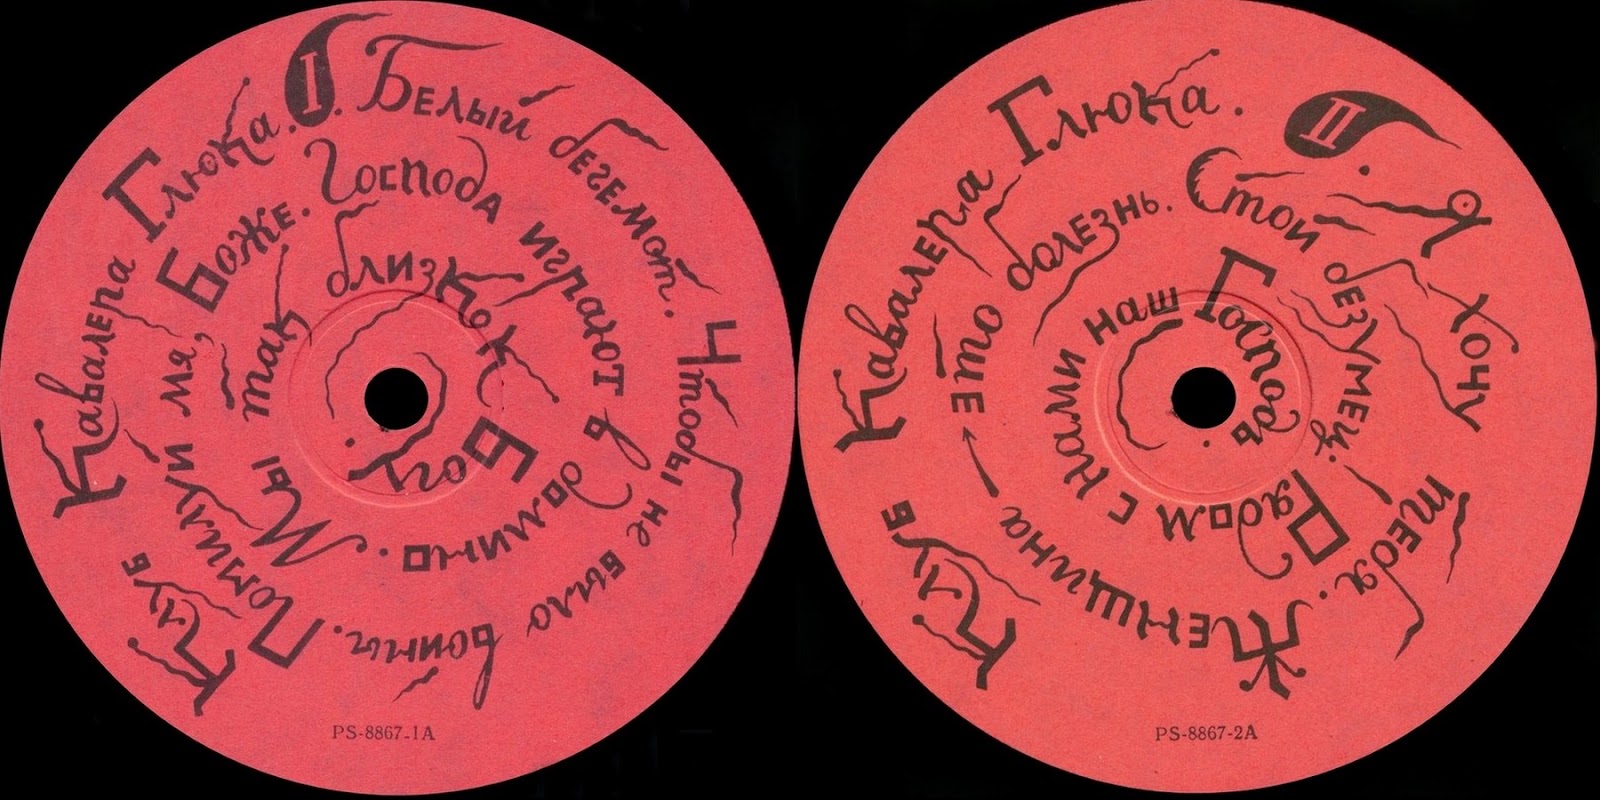 Клуб Кавалера Глюка. I.
Белый бегемот.
Чтобы не было войны.
Помилуй мя, Боже.
Господа играют в домино.
Мы так близко к Богу.
PS-8867-1A
Клуб Кавалера Глюка. II.
Я хочу тебя.
Женщина → это болезнь.
Стой безумец!
Рядом с нами наш Господь.
PS-8867-2A